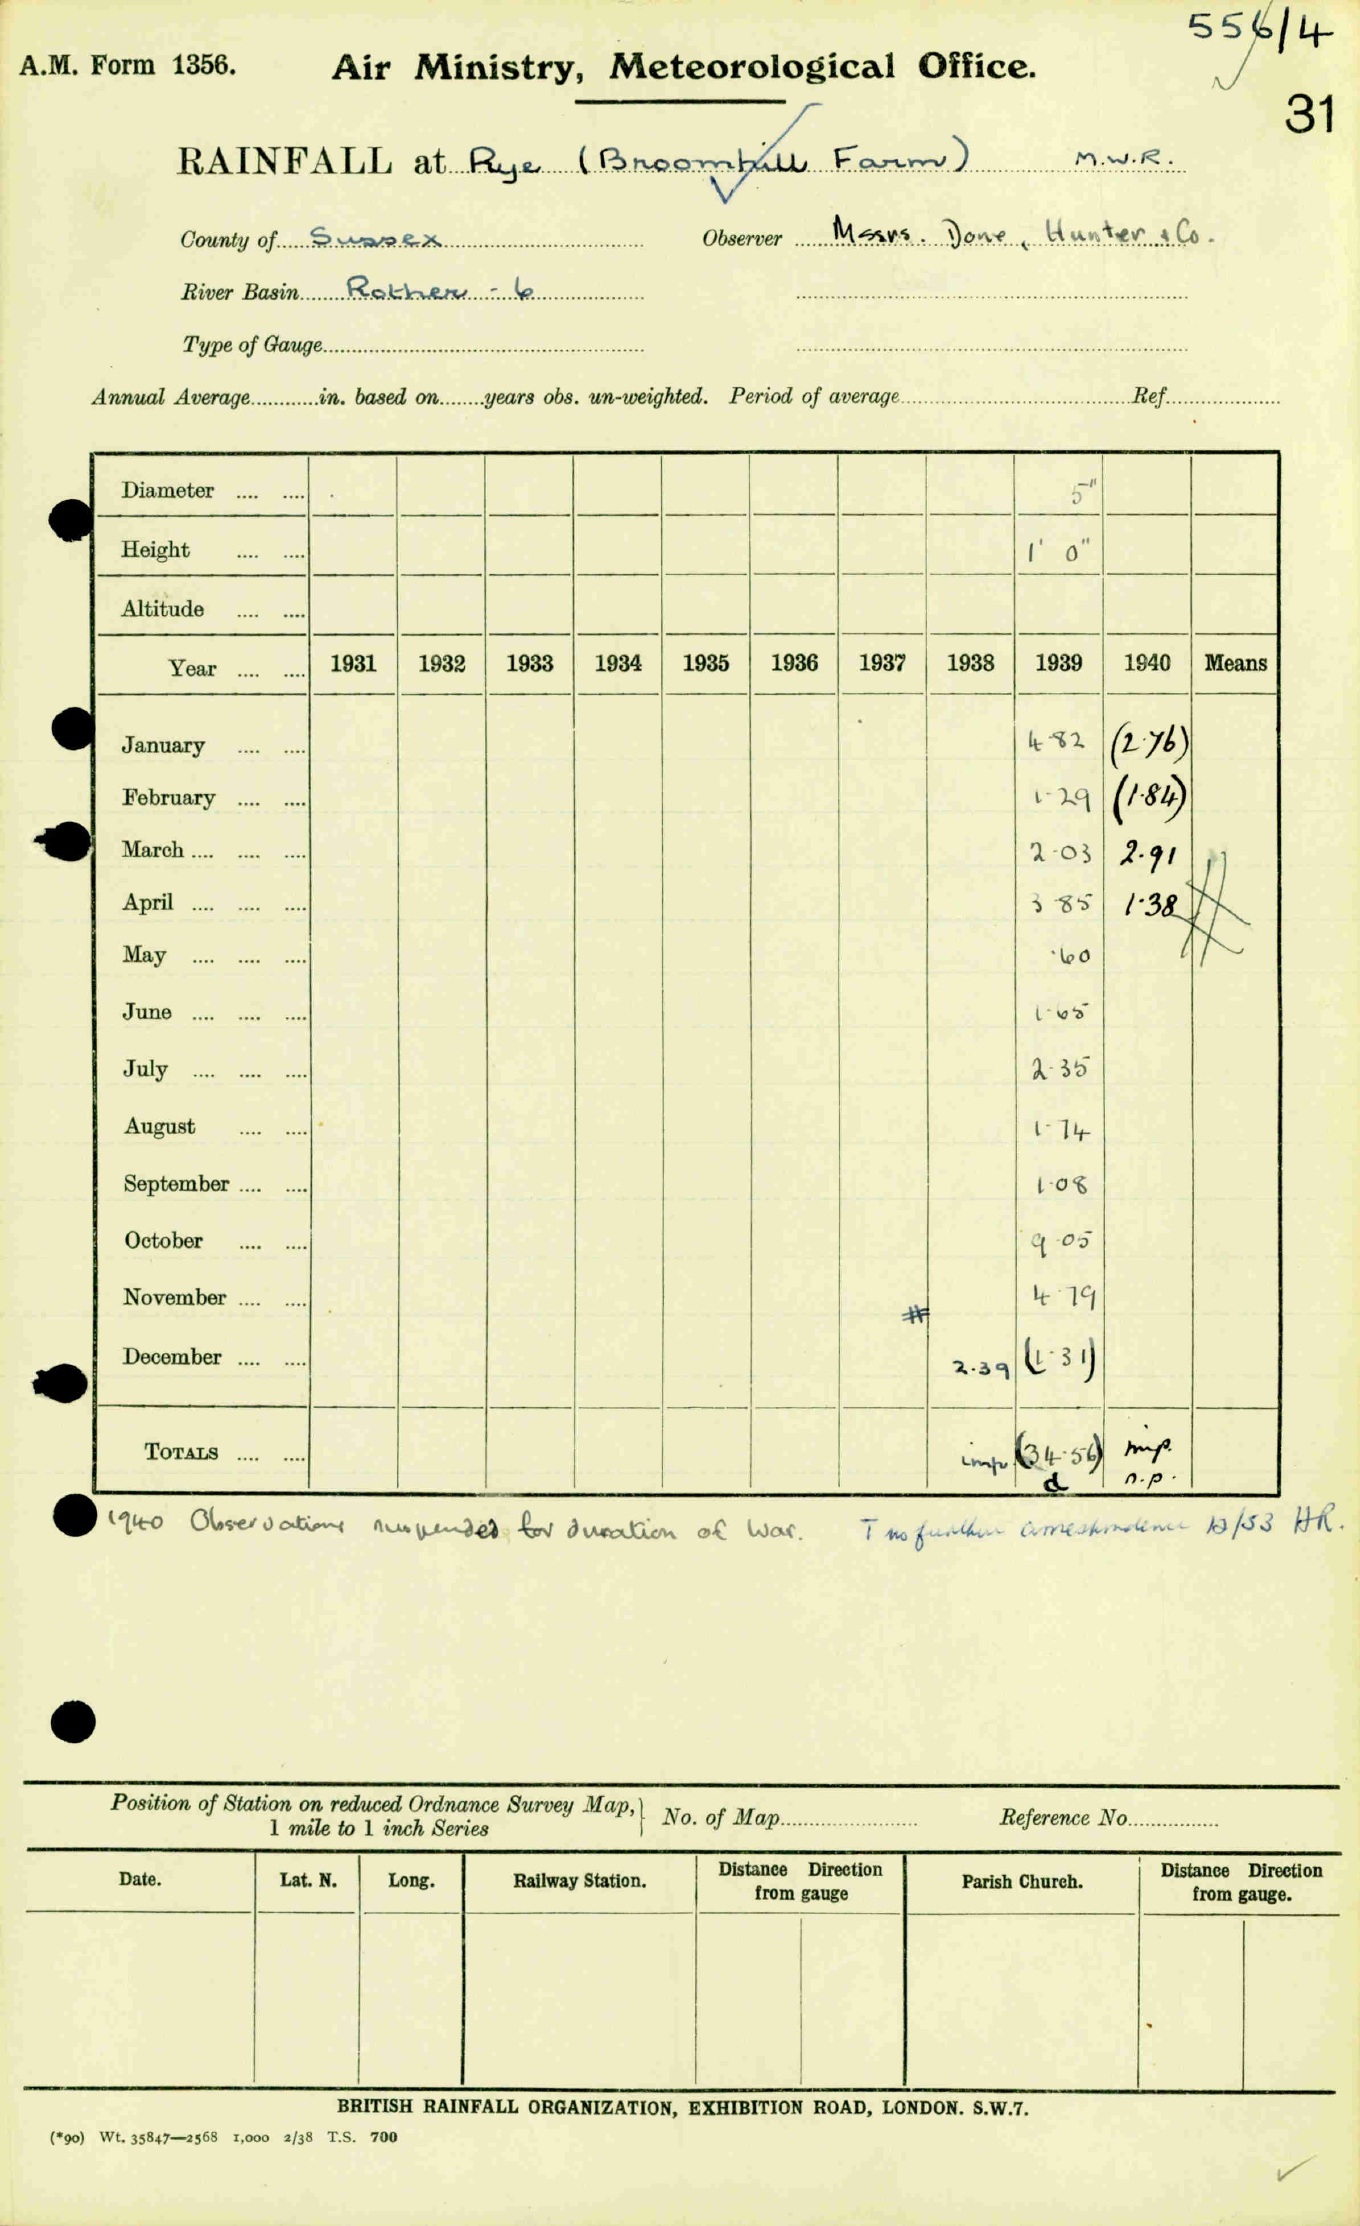 556/4
A.M. Form 1356. Air Ministry, Meteorological Office.
31
RAINFALL at Rye (Broomhill Farm) M.W.R.
County of Sussex Observer Mssrs. Done, Hunter & Co.
River Basin Rother - 6
Type of Gauge
Annual Average in. based on years obs. un-weighted. Period of average Ref.
Diameter 5"
Height 1' 0"
Altitude
Year 1931 1932 1933 1934 1935 1936 1937 1938 1939 1940 Means
January 4.82 (2.76)
February 1.29 (1.84)
March 2.03 2.91
April 3.85 1.38
May .60
June 1.65
July 2.35
August 1.74
September 1.08
October 9.05
November 4.79
#
December 2.39 (1.31)
TOTALS imp. (34.56) imp.
d n.p.
1940 Observations suspended for duration of War. T no further correspondence 12/53 HR.
Position of Station on reduced Ordnance Survey Map, } No. of Map Reference No.
1 mile to 1 inch Series
Date. Lat. N. Long. Railway Station. Distance Direction Parish Church. Distance Direction
from gauge from gauge.
BRITISH RAINFALL ORGANIZATION, EXHIBITION ROAD, LONDON. S.W.7.
(*90) Wt. 35847—2568 1,000 2/38 T.S. 700